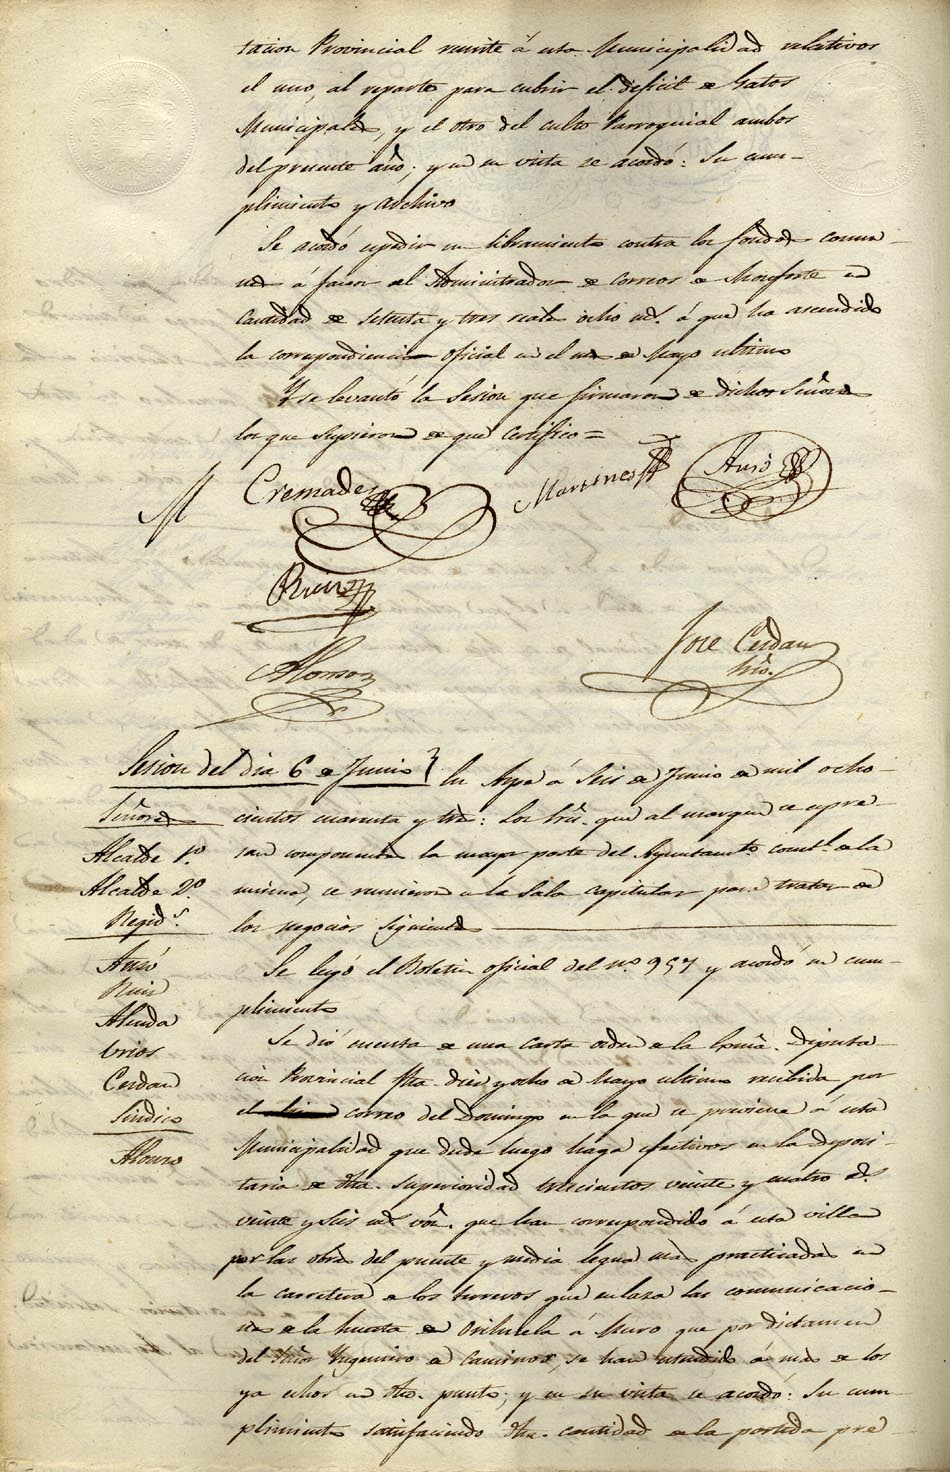 tacion Provincial remite á esta Municipalidad relativos
el uno, al reparto para cubrir el deficit de Gastos
Municipales, y el otro del culto Parroquial ambos
del presente año; y en su vista se acordó: Su cum-
plimiento y archivo
Se acordó espedir un libramiento contra los fondos comu-
nes á favor del Administrador de correos de Monforte en
Cantidad de setenta y tres reales ocho ms. á que ha ascendido
la correspondiencia oficial en el mes de Mayo ultimo
Y se levantó la Sesion que firmaron de dichos Señores
los que supieron de que Certifico =
M Cremades Martinez Ausó
Ruiz
Jose Cerdan
Srio.
Alonso
Sesion del dia 6 de Junio } En Aspe á Seis de Junio de mil ocho-
Señores
cientos cuarenta y tres: Los Sres. que al margen se espre-
Alcalde 1º.
san componentes la mayor parte del Ayuntamto. constl. de la
Alcalde 2º.
misma, se reunieron en la Sala capitular para tratar de
Regids.
los negocios siguientes
Ausó
Se leyó el Boletin oficial del nº. 957 y acordó su cum-
Ruiz
plimiento
Almda
Se dió cuenta de una carta orden de la Exma. Diputa-
brios
Cerdan
cion Provincial fha. diez y ocho de Mayo ultimo recibida por
Sindico
el correo del Domingo en la que se previene á esta
Alonso
Municipalidad que desde luego haga efectivos en la deposi-
taria de dha. superioridad trescientos veinte y cuatro rs.
veinte y seis ms. von. que han correspondido á esta villa
por las obras del puente y media legua mas practicadas en
la carretera de los Hornos que enlaza las comunicacio-
nes de la huerta de Orihuela á Muro que por dictamen
del Señor Yngeniero de Caminos, se han estendido á mas de los
ya echos en dho. punto; y en su vista se acordó: Su cum-
plimiento satisfaciendo dha. cantidad de la partida pre-